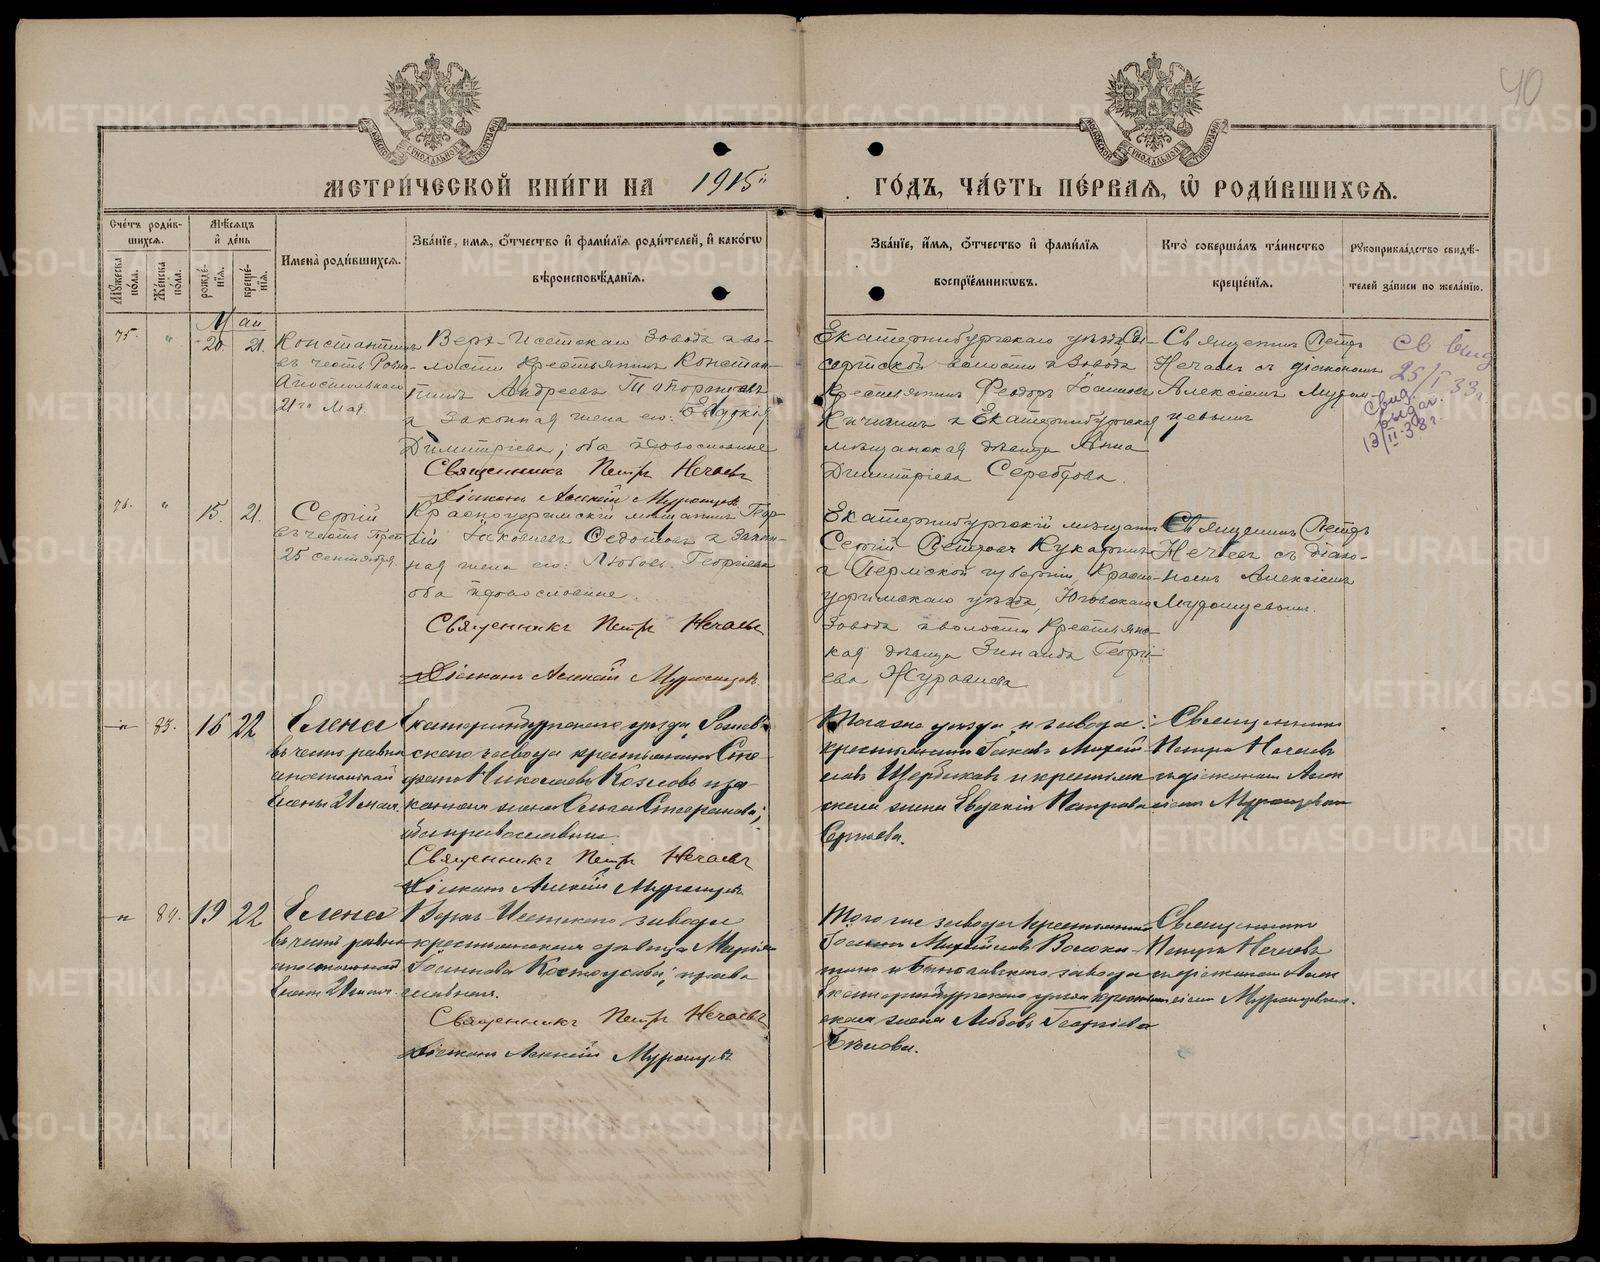 40
МЕТРИ́ЧЕСКОЙ КНИ́ГИ НА 1915 ГО́ДЪ, ЧА́СТЬ ПЕ́РВАЯ, Ѡ РОДИ́ВШИХСЯ.
Сче́тъ роди́вшихся.
Му́жеска по́ла.
Же́нска по́ла.
Мѣ́сяцъ и де́нь
рожде́нїя.
креще́нїя.
Имена̀ роди́вшихся.
Зва́нїе, имя, о́тчество и фами́лїя роди́телей, и како́гѡ
вѣроисповѣ́данїя.
Зва́нїе, и́мя, о́тчество и фами́лїя
воспрїе́мникѡвъ.
Кто̀ соверша́лъ та́инство
креще́нїя.
Рукоприкла́дство свидѣ́-
телей за́писи по жела́нїю.
Май
75. " 20. 21.
Константинъ
въ честь Равно-
Апостольнаго
21го Мая.
Верх-Исетскаго Завода и во-
лости крестьянинъ Констан-
тинъ Андреевъ Топорковъ
и Законная жена его: Евдокія
Димитріева; оба православные
Священникъ Петръ Нечаевъ
Діаконъ Алексій Муромцевъ
Екатеринбургскаго уѣзда, Сы-
сертской волости и Завода
крестьянинъ Феодоръ Іоанновъ
Кичигинъ и Екатеринбургская
мѣщанская дѣвица Анна
Димитріева Сереброва.
Священникъ Петръ
Нечаевъ съ діакономъ
Алексіемъ Муром-
цевымъ
св выд
25/I 33г
свид.
выдан.
13/II-38г.
76. " 15. 21.
Сергій
въ честь Преп.
25 сентября.
Красноуфимскій мѣщанинъ Геор-
гій Іаковлевъ Федотовъ и Закон-
ная жена его: Любовь Георгіева
оба православные.
Священникъ Петръ Нечаевъ
Діаконъ Алексій Муромцевъ
Екатеринбургскій мѣщанинъ
Сергій Петровъ Кукаркинъ
и Пермской губерніи, Красно-
уфимскаго уѣзда, Юговскаго
Завода и волости Крестьянс-
кая дѣвица Зинаида Георгі-
ева Журавлева
Священникъ Петръ
Нечаевъ съ діако-
номъ Алексіемъ
Муромцевымъ.
" 83. 16 22
Елена
въ честь равно
апостольной
Елены 21 мая.
Екатеринбургскаго уѣзда,
скаго завода крестьянинъ Сте-
фанъ Николаевъ Козловъ и за
конная жена Ольга Стефанова;
оба православные
Священникъ Петръ Нечаевъ
Діаконъ Алексій Муромцевъ
Того же уѣзда и завода:
крестьянинъ Іаковъ Михай-
ловъ Щербаковъ и крестьян
ская жена Евдокія Петрова
Сергѣева.
Священникъ
Петръ Нечаевъ
съ діакономъ Алек
сіемъ Муромцевымъ
" 84. 19 22
Елена
въ честь равно
апостольной
Елены 21 мая.
Верхъ-Исетскаго завода
крестьянская дѣвица Марія
Іоаннова Костоусова; право
славная.
Священникъ Петръ Нечаевъ
Діаконъ Алексій Муромцевъ
Того же завода крестьянинъ
Іоаннъ Михайловъ Волоки-
тинъ и завода
Екатеринбургскаго уѣзда крестьян
ская жена Любовь Георгіева
Бѣлова.
Священникъ
Петръ Нечаевъ
съ діакономъ Алек
сіемъ Муромцевымъ.
METRIKI.GASO-URAL.RU